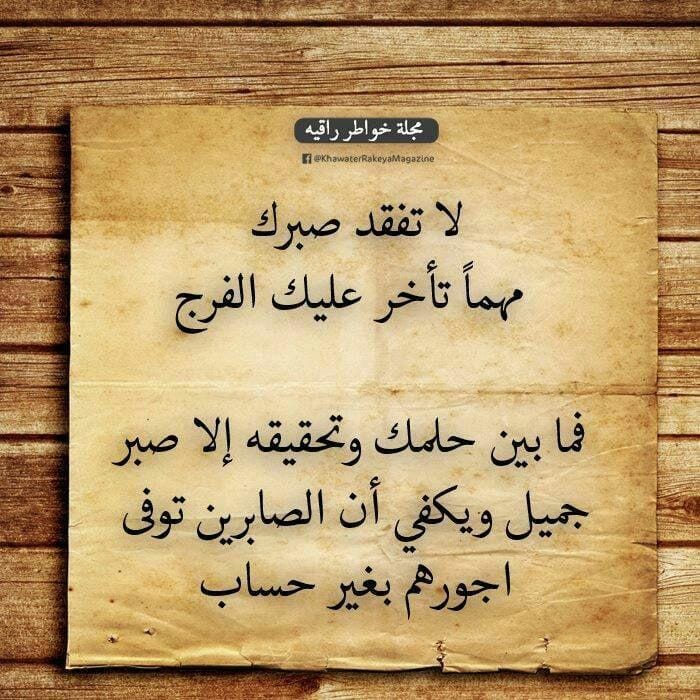 مجلة خواطر راقيه
@KhawaterRakeyaMagazine
لا تفقد صبرك
مهماً تأخر عليك الفرج
فما بين حلمك وتحقيقه إلا صبر
جميل ويكفي أن الصابرين توفى
اجورهم بغير حساب